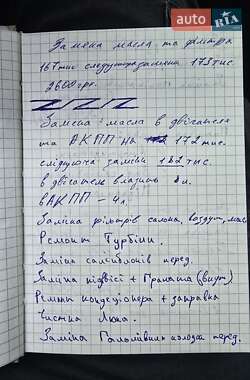 auto RIA
Замена масла та фільтра
167 тис следующая замена 175 тис
2600 грн.
Заміна масла в двігателя
та АКПП на 172 тис.
слідуюча заміни 182 тис.
в двігатель влазить 8л.
в АКПП - 4л.
Заміна фільтрів салона, воздуш, масл
Ремонт Турбіни.
Заміна сайлінблоків перед.
Заміна підвісі + Граната (внут)
Ремонт кондеціонера + заправка
Чистка Люка.
Заміна Гальмівних колодок перед.